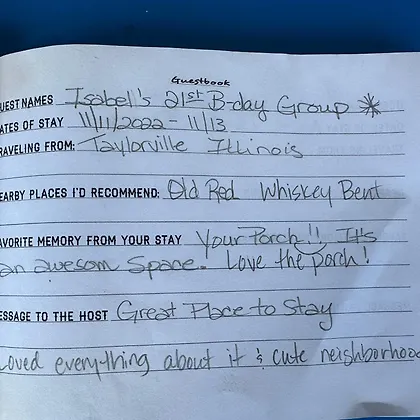 Guestbook
UEST NAMES Isabel's 21st B-day Group
ATES OF STAY 11/11/2022 - 11/13
RAVELING FROM: Taylorville Illinois
EARBY PLACES I'D RECOMMEND: Old Red Whiskey Bent
AVORITE MEMORY FROM YOUR STAY Your Porch!! It's
an awesom space. Love the porch!
ESSAGE TO THE HOST Great Place to Stay
Loved everything about it & cute neighborhood